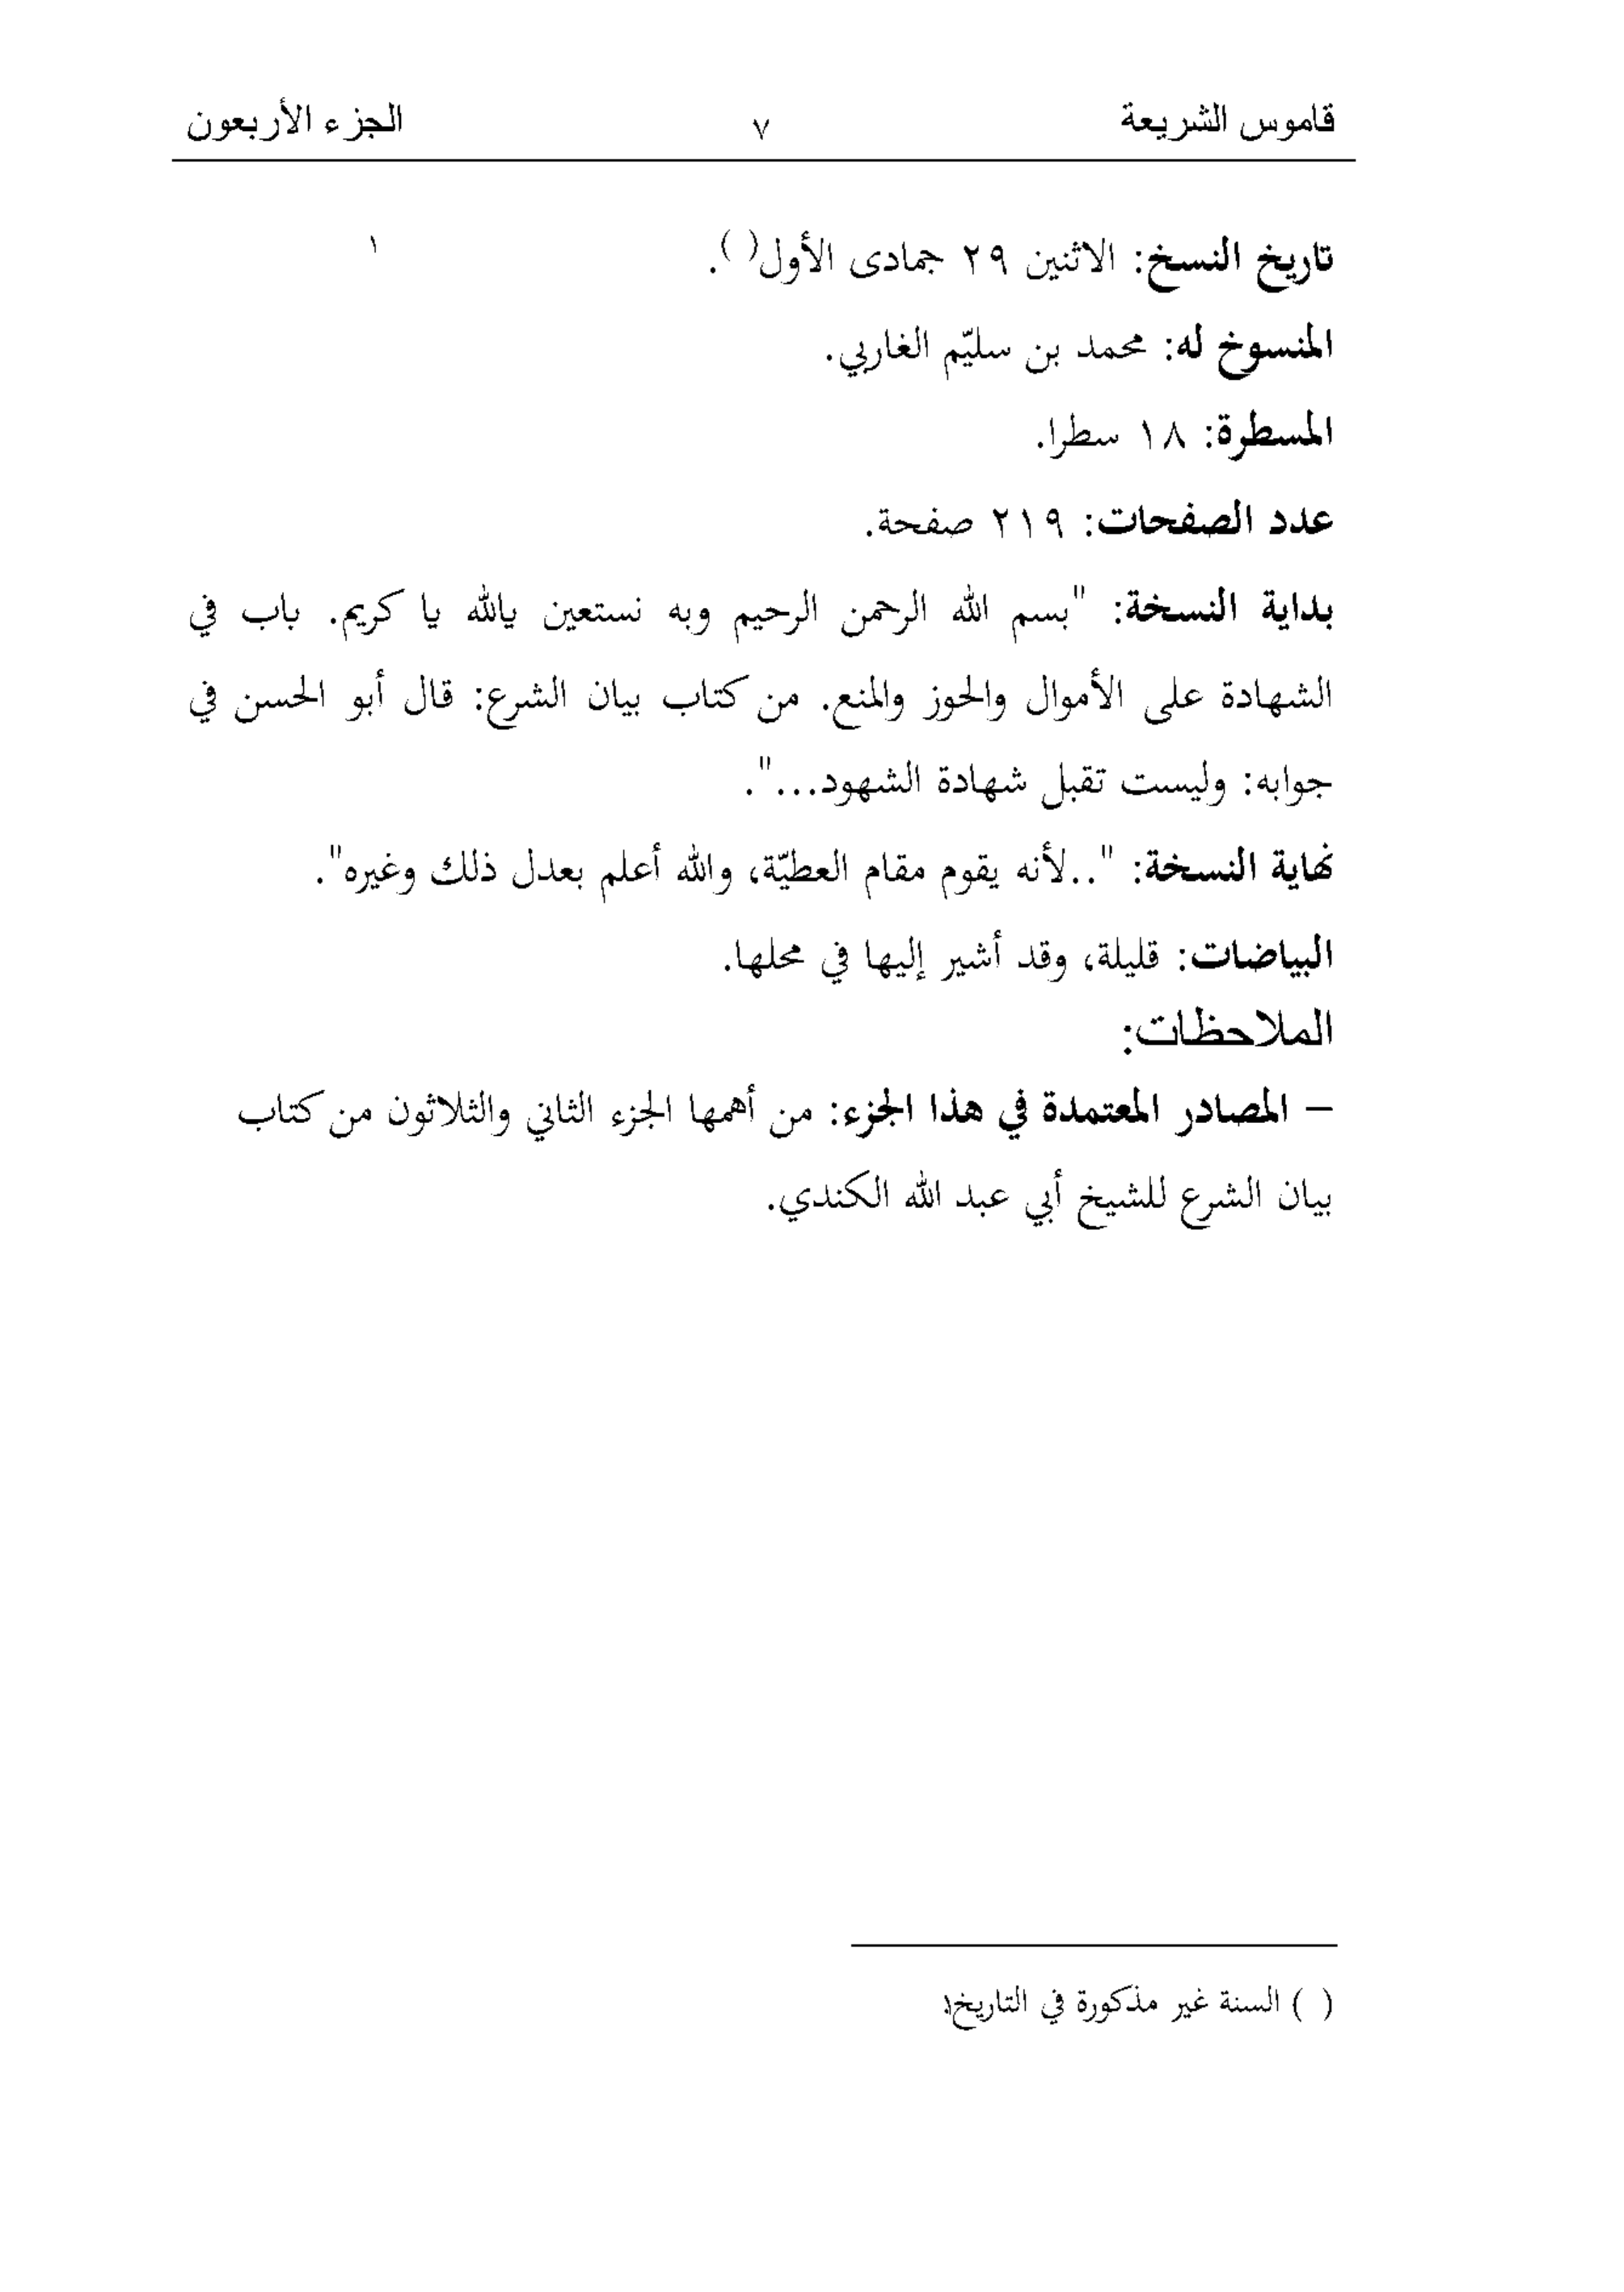 قاموس الشريعة ٧ الجزء الأربعون
تاريخ النسخ: الاثنين ٢٩ جمادى الأول( ). ١
المنسوخ له: محمد بن سليّم الغاربي.
المسطرة: ١٨ سطرا.
عدد الصفحات: ٢١٩ صفحة.
بداية النسخة: "بسم الله الرحمن الرحيم وبه نستعين يالله يا كريم. باب في
الشهادة على الأموال والحوز والمنع. من كتاب بيان الشرع: قال أبو الحسن في
جوابه: وليست تقبل شهادة الشهود...".
نهاية النسخة: "..لأنه يقوم مقام العطيّة، والله أعلم بعدل ذلك وغيره".
البياضات: قليلة، وقد أشير إليها في محلها.
الملاحظات:
– المصادر المعتمدة في هذا الجزء: من أهمها الجزء الثاني والثلاثون من كتاب
بيان الشرع للشيخ أبي عبد الله الكندي.
( ) السنة غير مذكورة في التاريخ١